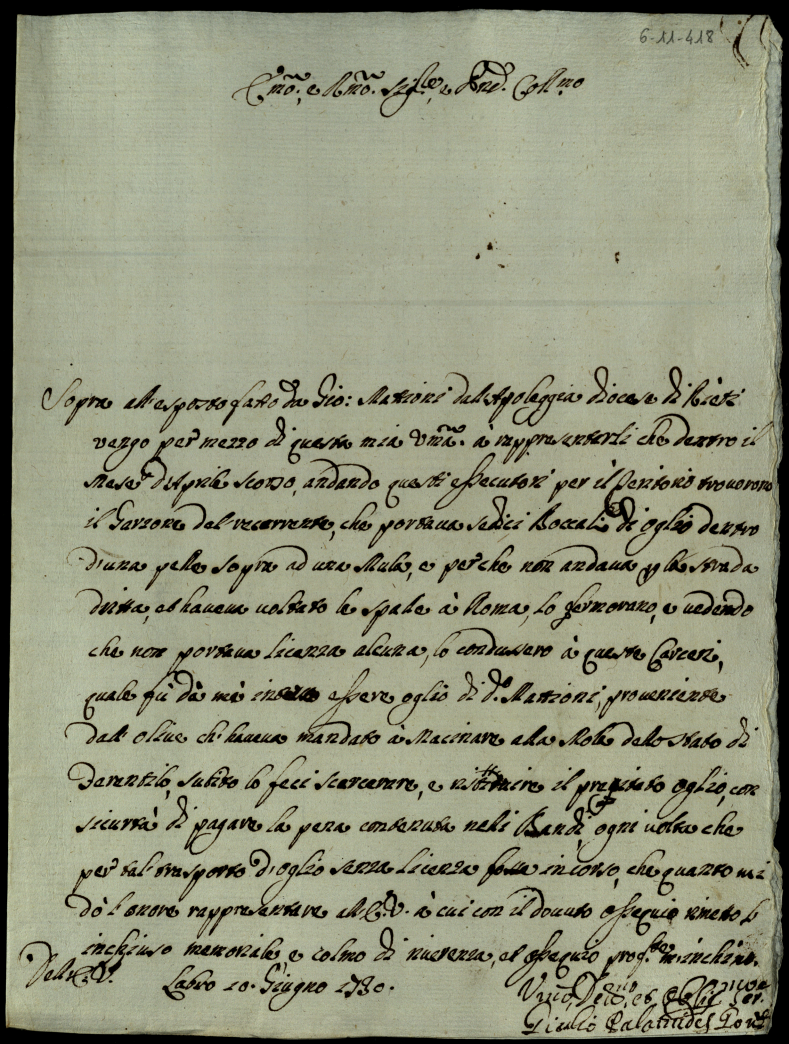 6-11-418
Emo. e Rmo. Sigre. e Pne. Colmo
Sopra all'esposto fatto da Gio: Mattioni dall'Apoleggia diocese di Rieti
vengo per mezzo di questa mia umma. à rappresentarli che dentro il
mese d'Aprile scorso, andando questi essecutori per il Teritorio trovorono
il Garzone del recorrente, che portava sedici Boccali di oglio dentro
d'una pelle sopra ad una Mula, e perche non andava p la strada
dritta, et haveva voltato le spale à Roma, lo fermorano, e vedendo
che non portava licenza alcuna, lo condussero à queste Carceri,
quale fù da me inteso essere oglio di do. Mattioni, proveniente
dall'olive ch'haveva mandato à Macinare alla Mola dello Stato di
Tarantilo, subito lo feci scarcerare, e ristituire il precitato oglio, con
sicurtà di pagare la pena contenuta neli Bandi, ogni volta che
per tal trasporto d'oglio senza licenza fosse incorso, che quanto mi
dò l'onore rappresentare all'E.V. à cui con il dovuto ossequio rimetto lo
inchiuso memoriale, e colmo di riverenza, et ossequio profte. m'inchino.
Dell'E.V. Labro 10. Giugno 1730.
Umo, Devo, et Obl ser.
Giulio Palatti Pont